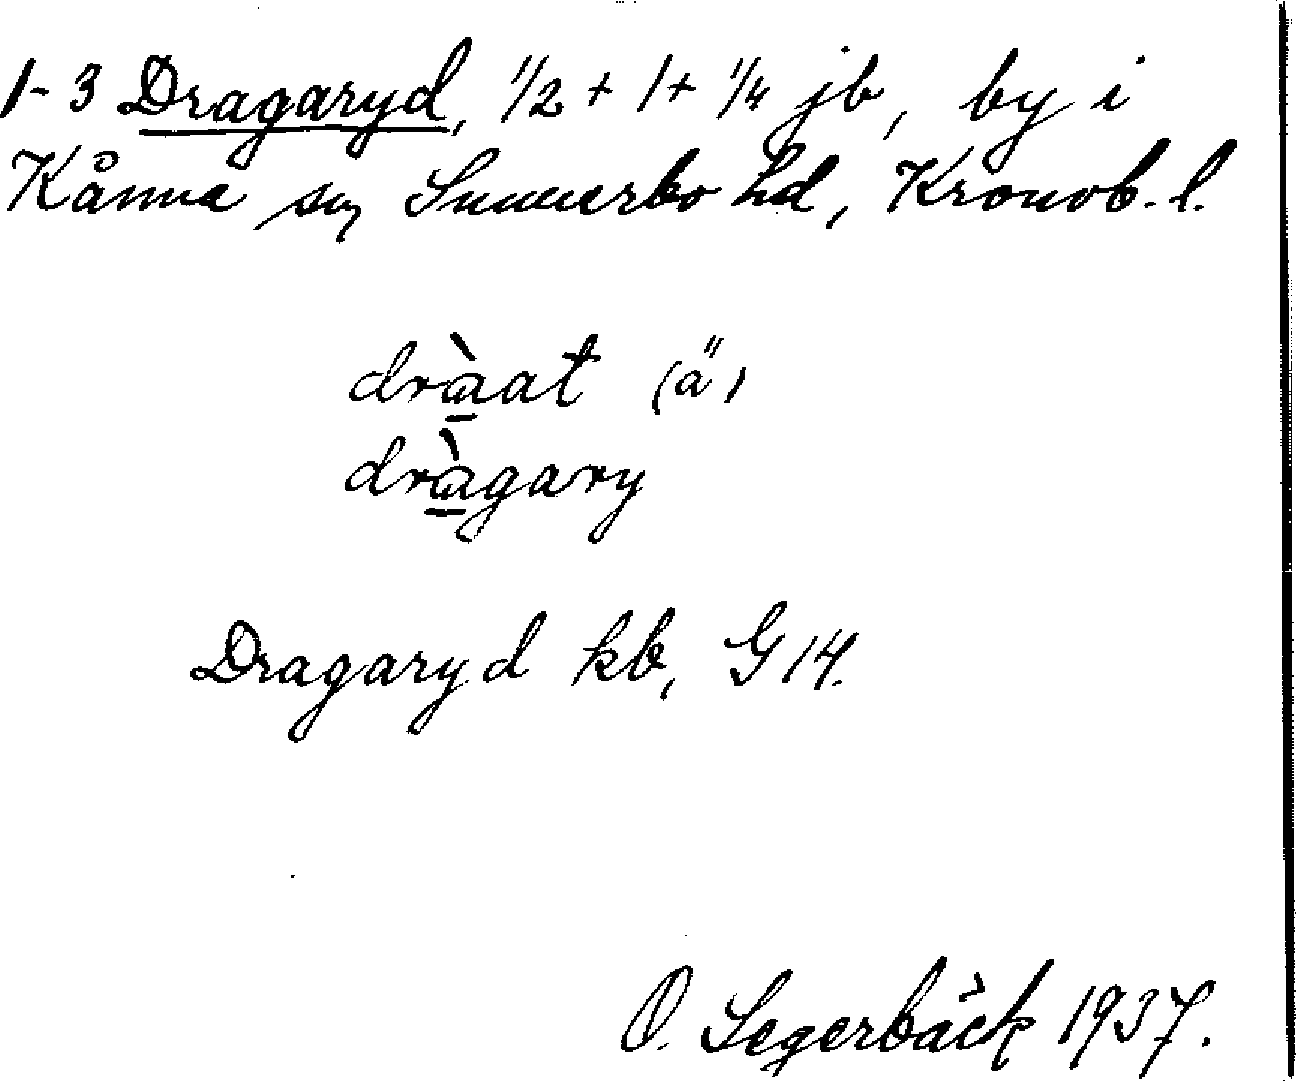 1-3 Dragaryd, 1/2 + 1 + 1/4 jb, by i
Kånna sn, Sunnerbo hd, Kronob. l.
drà̱at (ä)
drà̱gary
Dragaryd kb, G 14.
O. Segerbäck 1937.